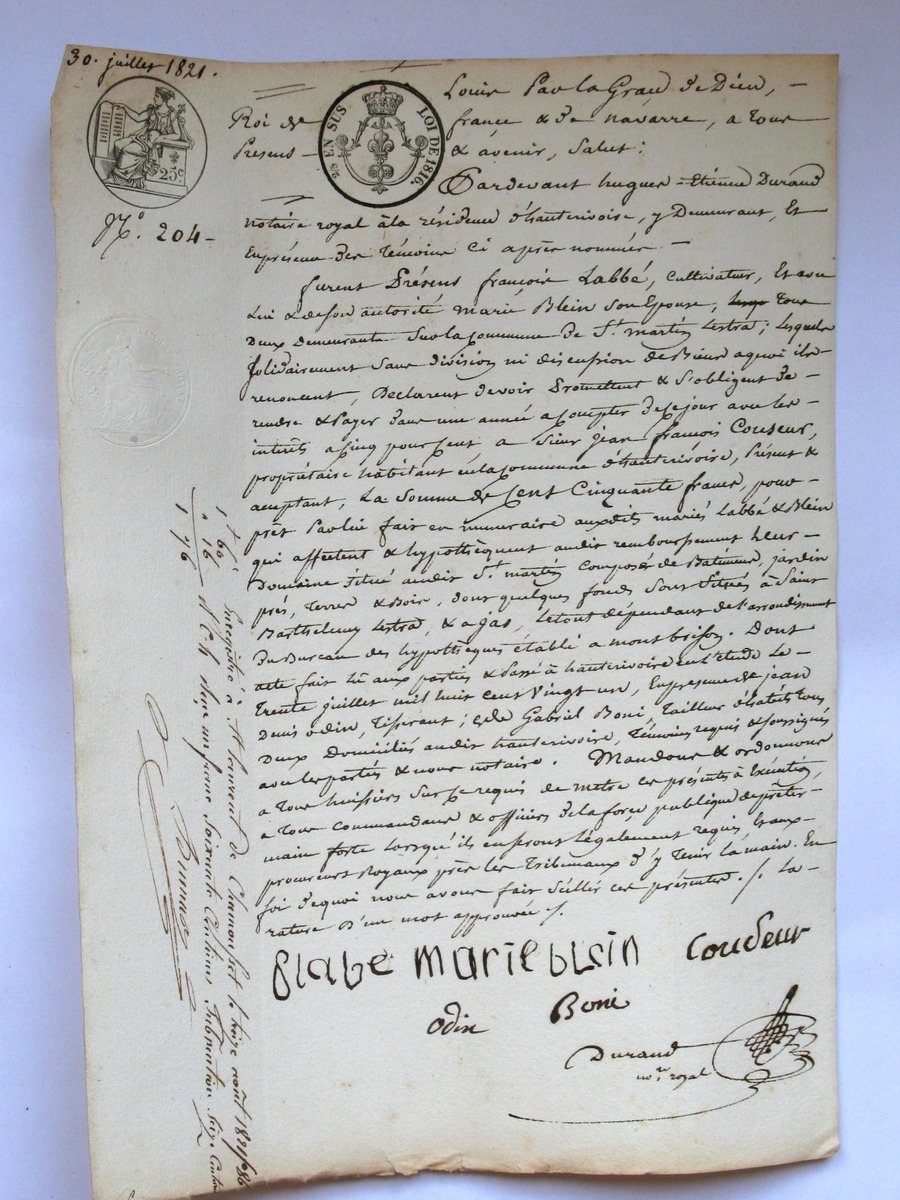 30. juillet 1821.
25c
2/5 EN SUS LOI DE 1816.
N.º 204 -
Louis Par la Grace de Dieu, -
Roi de france & de navarre, a tous
Présens - & avenir, Salut:
Pardevant hugues - Etienne Durand
notaire royal à la résidence d'hauterivoire, y Demeurant, Et
En présence des Témoins Ci après nommés -
furent Présens françois Labbé, cultivateur, Et sous
Lui & de son autorité marie Blein son Epouse, tous
Deux Demeurants Sur la Commune de St. martin Lestra; lesquels
Solidairement Sans division ni discussion de Biens aquoi ils
renoncent, Déclarent devoir Promettent & S'obligent de
rendre & Payer dans une année a compter de ce jour avec les
interets a cinq pour cent, a Sieur jean françois Couseur,
propriétaire habitant en la Commune d'hauterivoire, Présent &
acceptant, La Somme de Cent Cinquante francs, pour
prêt Par lui fait en numeraire auxdits mariés Labbé & Blein
qui affectent & hypothèquent audit remboursement leur
Domaine Situé audit St. martin Composé de Batimens, jardin
prés, Terres & Bois, dont quelques fonds Sont Situés à Saint
Barthelemy Lestra, & a gas, le tout dépendant de l'arrondissement
Du Bureau des hypothèques établi a montbrison. Dont
acte fait lû aux parties & Passé à hauterivoire en l'étude Le
Trente juillet mil huit cent vingt un, En présence de jean
Denis Odin, Tisserant; & de Gabriel Boni, Tailleur d'habits tous
Deux Domiciliés audit hauterivoire, Témoins requis & soussignés
avec les parties & nous notaire. Mandons & ordonnons
a Tous huissiers Sur ce requis de mettre ces présentes à Exécution,
a Tous commandans & officiers de la force publique de prêter
main forte lorsqu'ils en seront légalement requis, Et aux
procureurs Royaux près les Tribunaux d'y Tenir la main. En
foi de quoi nous avons fait Sceller ces présentes ./. La
rature d'un mot approuvée ./.
Labe marie blein Couseur
Odin Boni
Durand
no.re royal
1 f 60 c
" 16
1 76
Enregistré à St Laurent de Chamousset le treize août 1821 fo 86
Reçu un franc soixante Centimes Subvention Seize Centimes